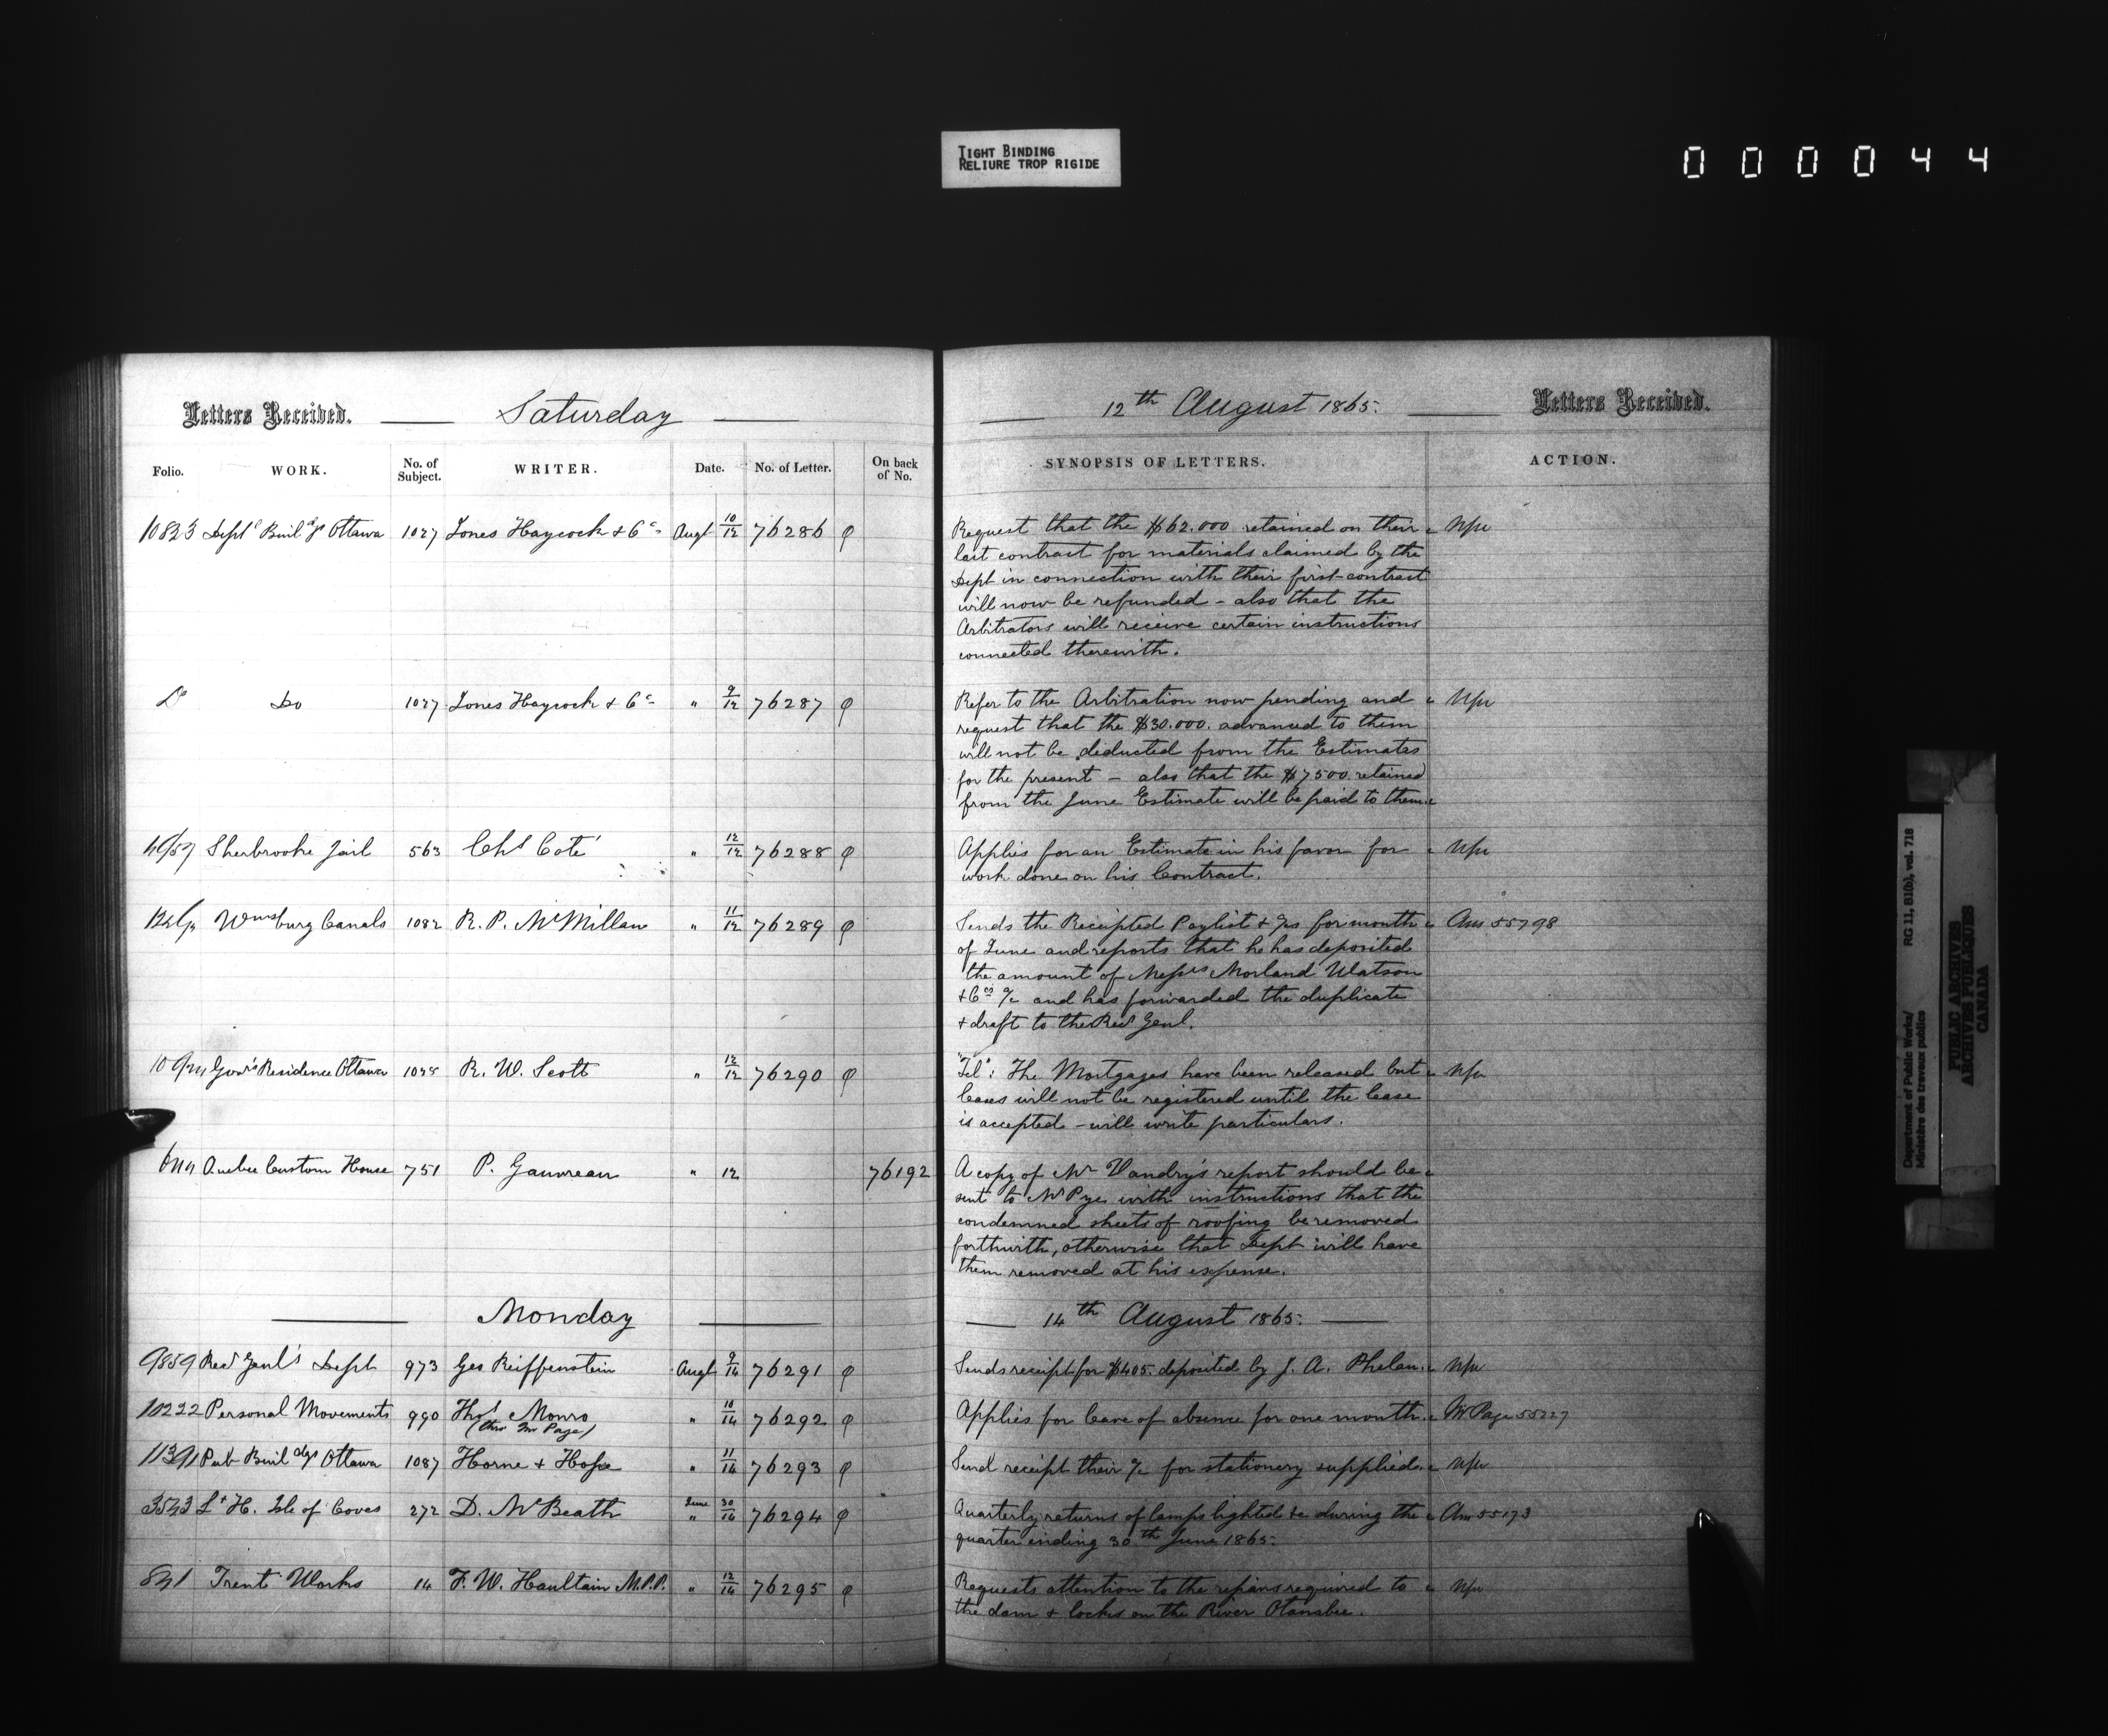 TIGHT BINDING
RELIURE TROP RIGIDE
000044
Letters Received. Saturday 12th August 1865. Letters Received.
Folio. WORK. No. of Subject. WRITER. Date. No. of Letter. On back of No. SYNOPSIS OF LETTERS. ACTION.
10823 Deptl Buildgs Ottawa 1027 Jones Haycock & Co Augt 10/12 76286 Request that the $62.000 retained on their
last contract for materials claimed by the
Dept in connection with their first contract
will now be refunded - also that the
Arbitrators will receive certain instructions
connected therewith.
Do Do 1027 Jones Haycock & Co " 9/12 76287 Refer to the Arbitration now pending and
request that the $30.000. advanced to them
will not be deducted from the Estimates
for the present - also that the $7500. retained
from the June Estimate will be paid to them.
Sherbrooke Jail 563 Chs Coté " 12/12 76288 Applies for an Estimate in his favor for
work done on his Contract.
Wmsburg Canals 1082 R. P. McMillan " 11/12 76289 Sends the Receipted Paylist & for month Ans 55798
of June and reports that he has deposited
the amount of Messrs Morland Watson
& Cos a/c and has forwarded the duplicate
& draft to the Recr Genl.
Govr's Residence Ottawa 1028 R. W. Scott " 12/12 76290 "Tel": The Mortgages have been released but
leases will not be registered until the lease
is accepted - will write particulars.
Quebec Custom House 751 P. Gauvreau " 12 76192 A copy of Mr Vandry's report should be
sent to Mr Pye with instructions that the
condemned sheets of roofing be removed
forthwith, otherwise that Dept will have
them removed at his expense.
Monday 14th August 1865.
9859 Recr Genl's Dept 973 Geo Reiffenstein Augt 9/14 76291 Sends receipt for $405. deposited by J. A. Phelan.
10222 Personal Movements 990 Thos Monro " 10/14 76292 Applies for leave of absence for one month. Mr Page 55227
(thro Mr Page)
Pub Buildgs Ottawa 1087 Horne & Hope " 11/14 76293 Send receipt their a/c for stationery supplied.
3543 Lt H. Isle of Coves 272 D. McBeath June " 30/14 76294 Quarterly returns of lamps lighted &c during the Ans 55173
quarter ending 30th June 1865.
841 Trent Works 14 F. W. Haultain M.P.P. " 12/14 76295 Requests attention to the repairs required to
the dam & locks on the River Otanabee.
Department of Public Works/
Ministère des travaux publics
RG 11, B1(b), vol. 718
PUBLIC ARCHIVES
ARCHIVES PUBLIQUES
CANADA